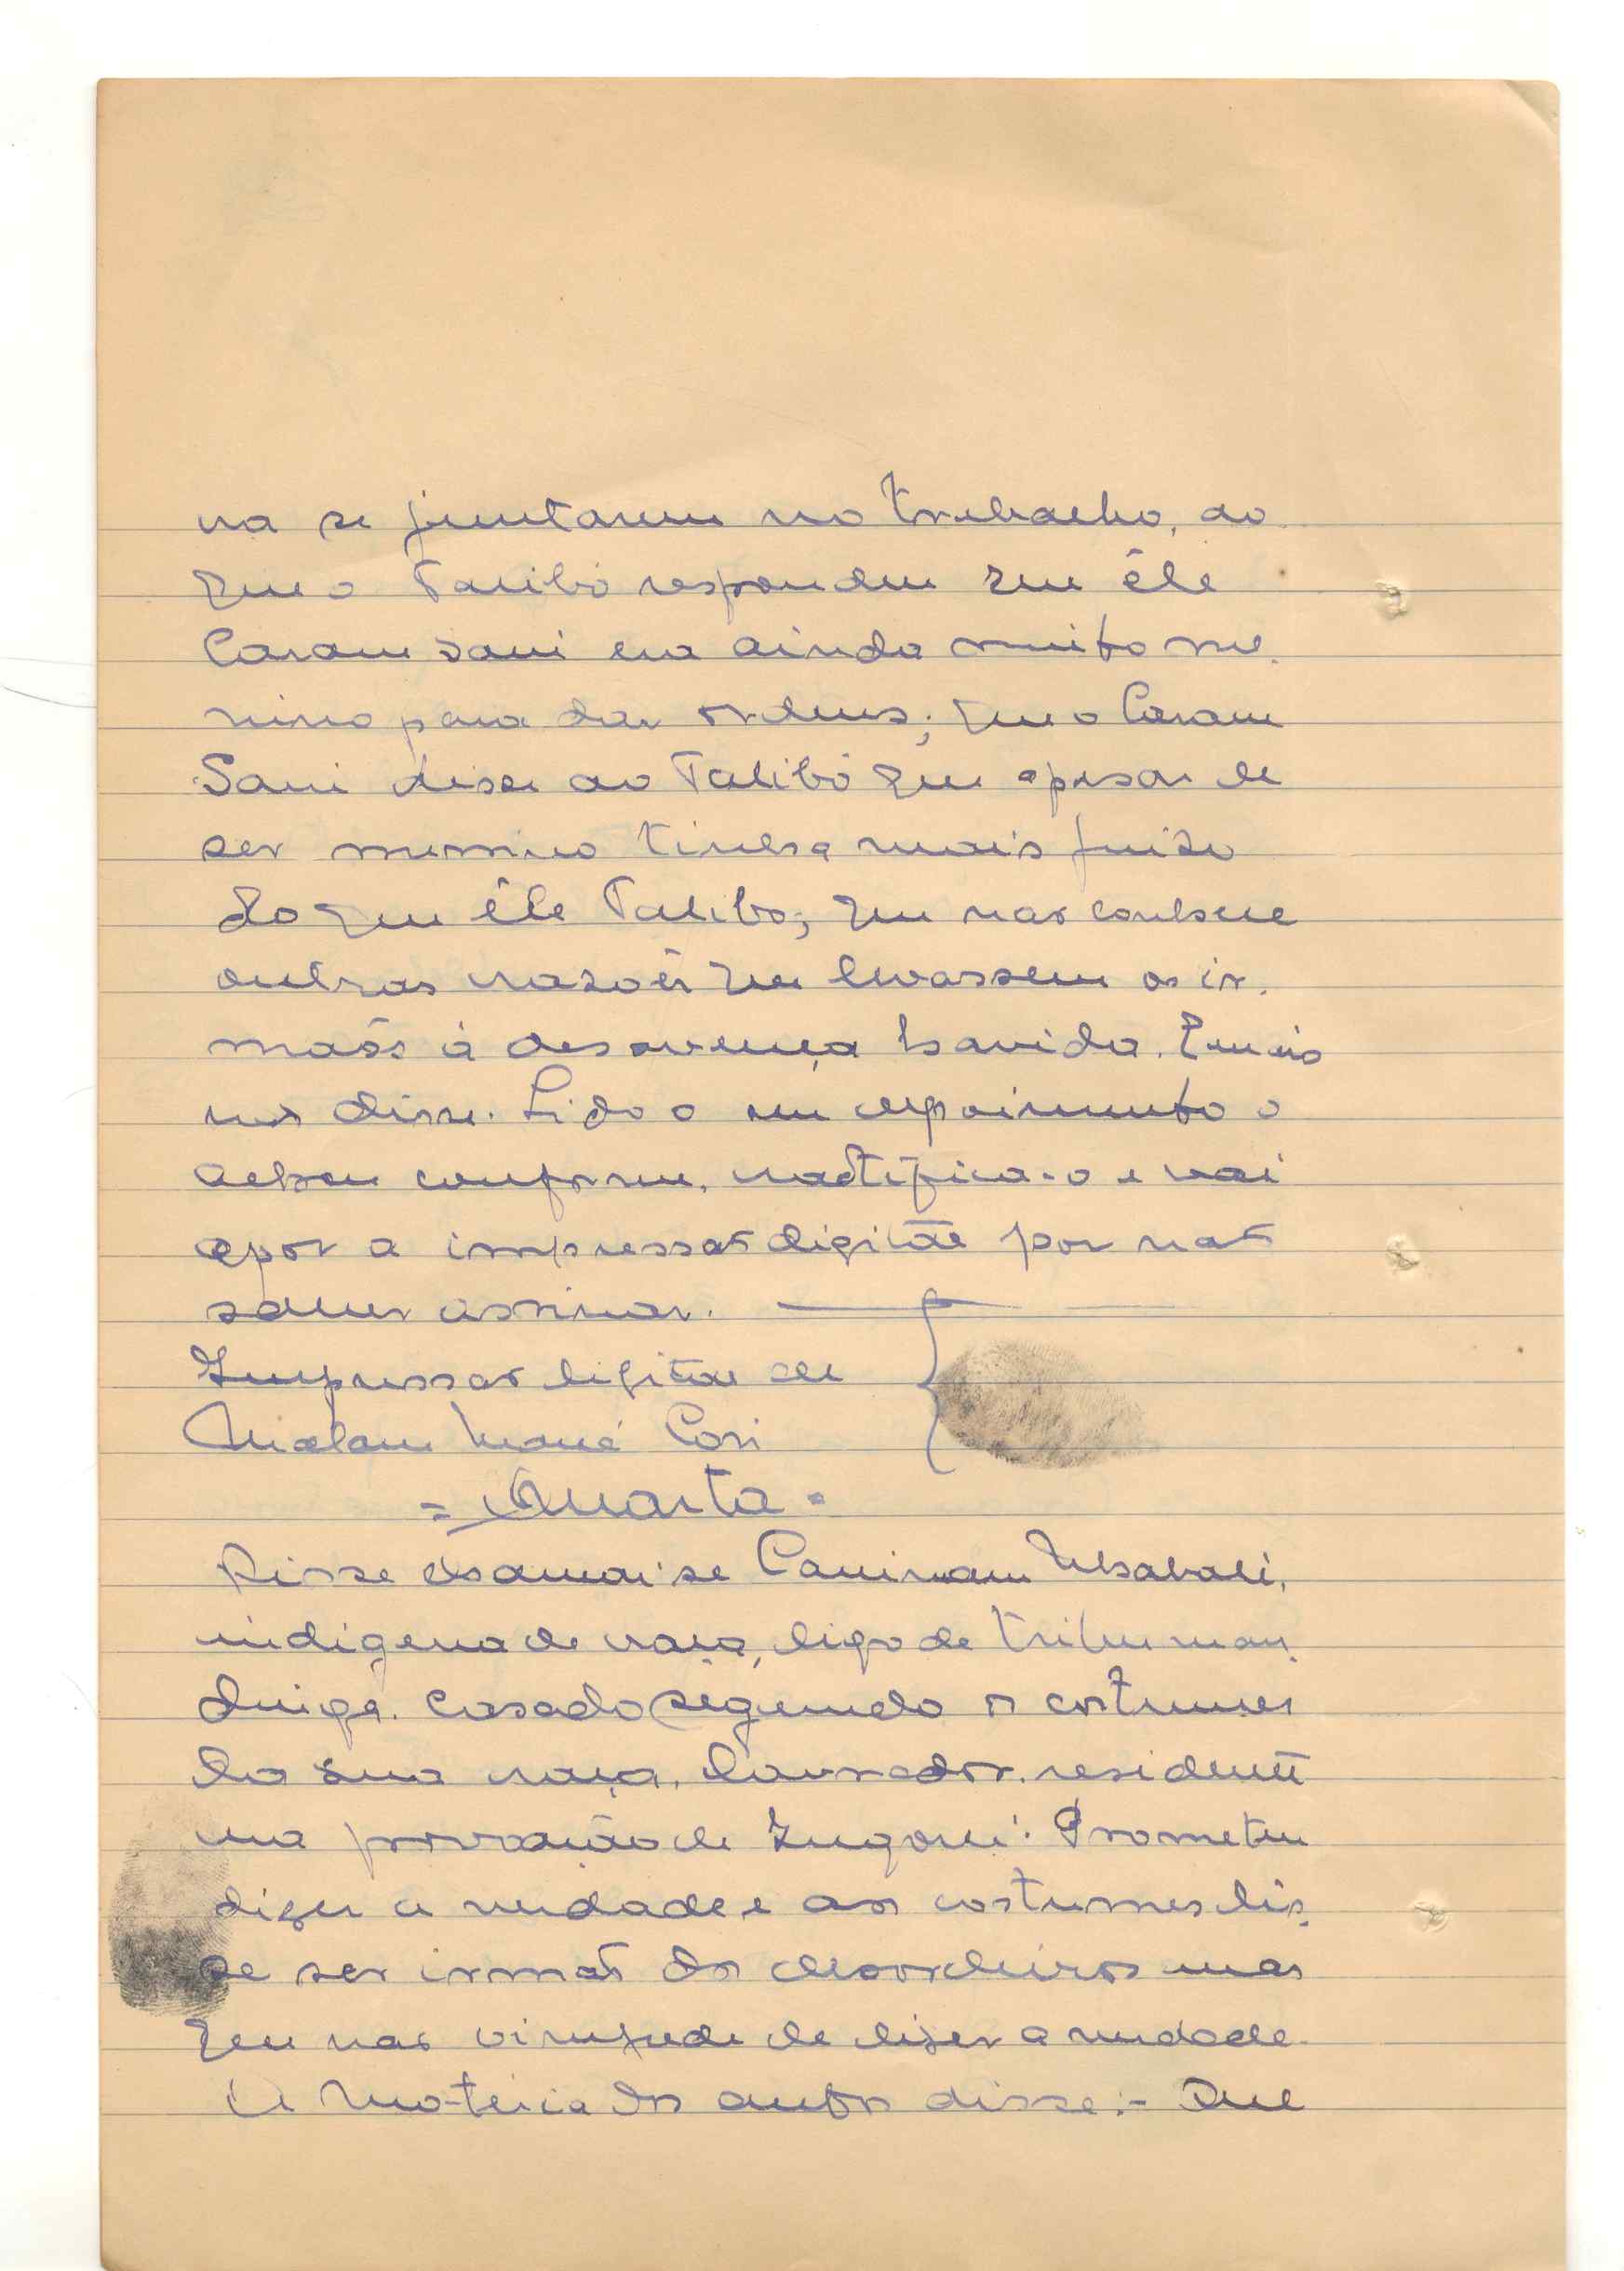 ra se juntarem no trabalho, ao
que o Talibó respondeu que êle
Caram Sani era ainda muito me-
nino para dar ordens; que o Caram
Sani disse ao Talibó que apesar de
ser menino tinha mais juizo
do que êle Talibo; que não conhece
outras razões que levassem os ir-
mãos á desavença havida. E mais
não disse. Lido o seu depoimento o
achou conforme, ractifica-o e vai
apor a impressão digital por não
saber assinar.
Impressão digital de
Malam Mané Cori
= Quarta =
Disse chamar-se
indigena de raça, digo de tribu man-
dinga, casado segundo os costumes
da sua raça, lavrador, residente
na povoação de Prometeu
dizer a verdade e aos costumes dis-
se ser irmão dos desordeiros mas
que não impede de dizer a verdade.
A materia dos autos disse:- Que